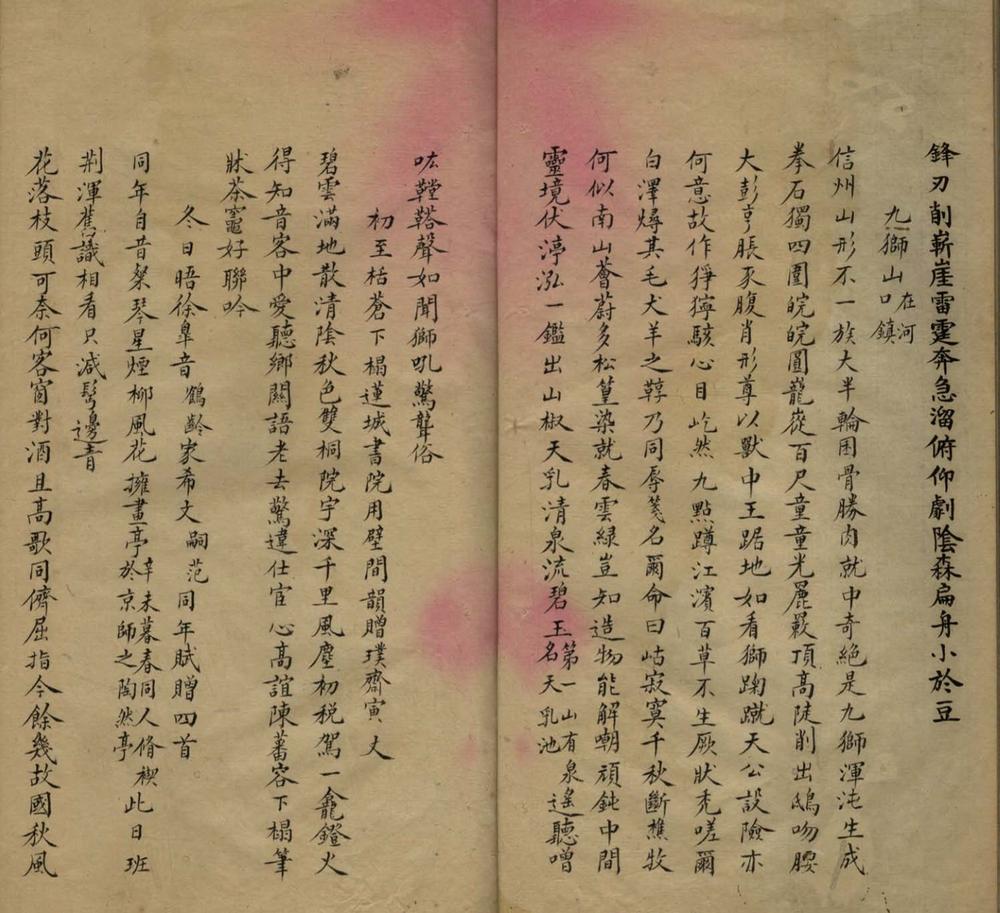 鋒刃削嶄崖雷霆奔急溜俯仰劇陰森扁舟小於豆
九獅山在河口鎮
信州山形不一族大半輪囷骨勝肉就中奇絕是九獅渾沌生成
拳石獨四圍皖皖圓巃嵸百尺童童光麗厜頂高陡削出鴟吻腰
大彭亨脹豕腹肖形尊以獸中王踞地如看獅踘蹴天公設險亦
何意故作猙獰駭心目屹然九點蹲江濱百草不生厥狀禿嗟爾
白澤燖其毛犬羊之鞟乃同辱箋名爾命曰岵寂寞千秋斷樵牧
何似南山薈蔚多松篁染就春雲綠豈知造物能解嘲頑鈍中間
靈境伏渟泓一鑑出山椒天乳清泉流碧玉第一山有泉名天乳池遙聽噌
吰鞺鞳聲如聞獅吼驚聾俗
初至栝蒼下榻蓮城書院用壁間韻贈璞齋寅丈
碧雲滿地散清陰秋色雙桐院宇深千里風塵初稅駕一龕鐙火
得知音客中愛聽鄉關語老去驚違仕宦心高誼陳蕃容下榻筆
牀茶竈好聯吟
冬日晤徐皐音鶴齡家希文嗣范同年賦贈四首
同年自昔粲琴星煙柳風花擁畫亭辛未暮春同人脩禊於京師之陶然亭此日班
荆渾舊識相看只減鬢邊青
花落枝頭可奈何客窗對酒且高歌同儕屈指今餘幾故國秋風